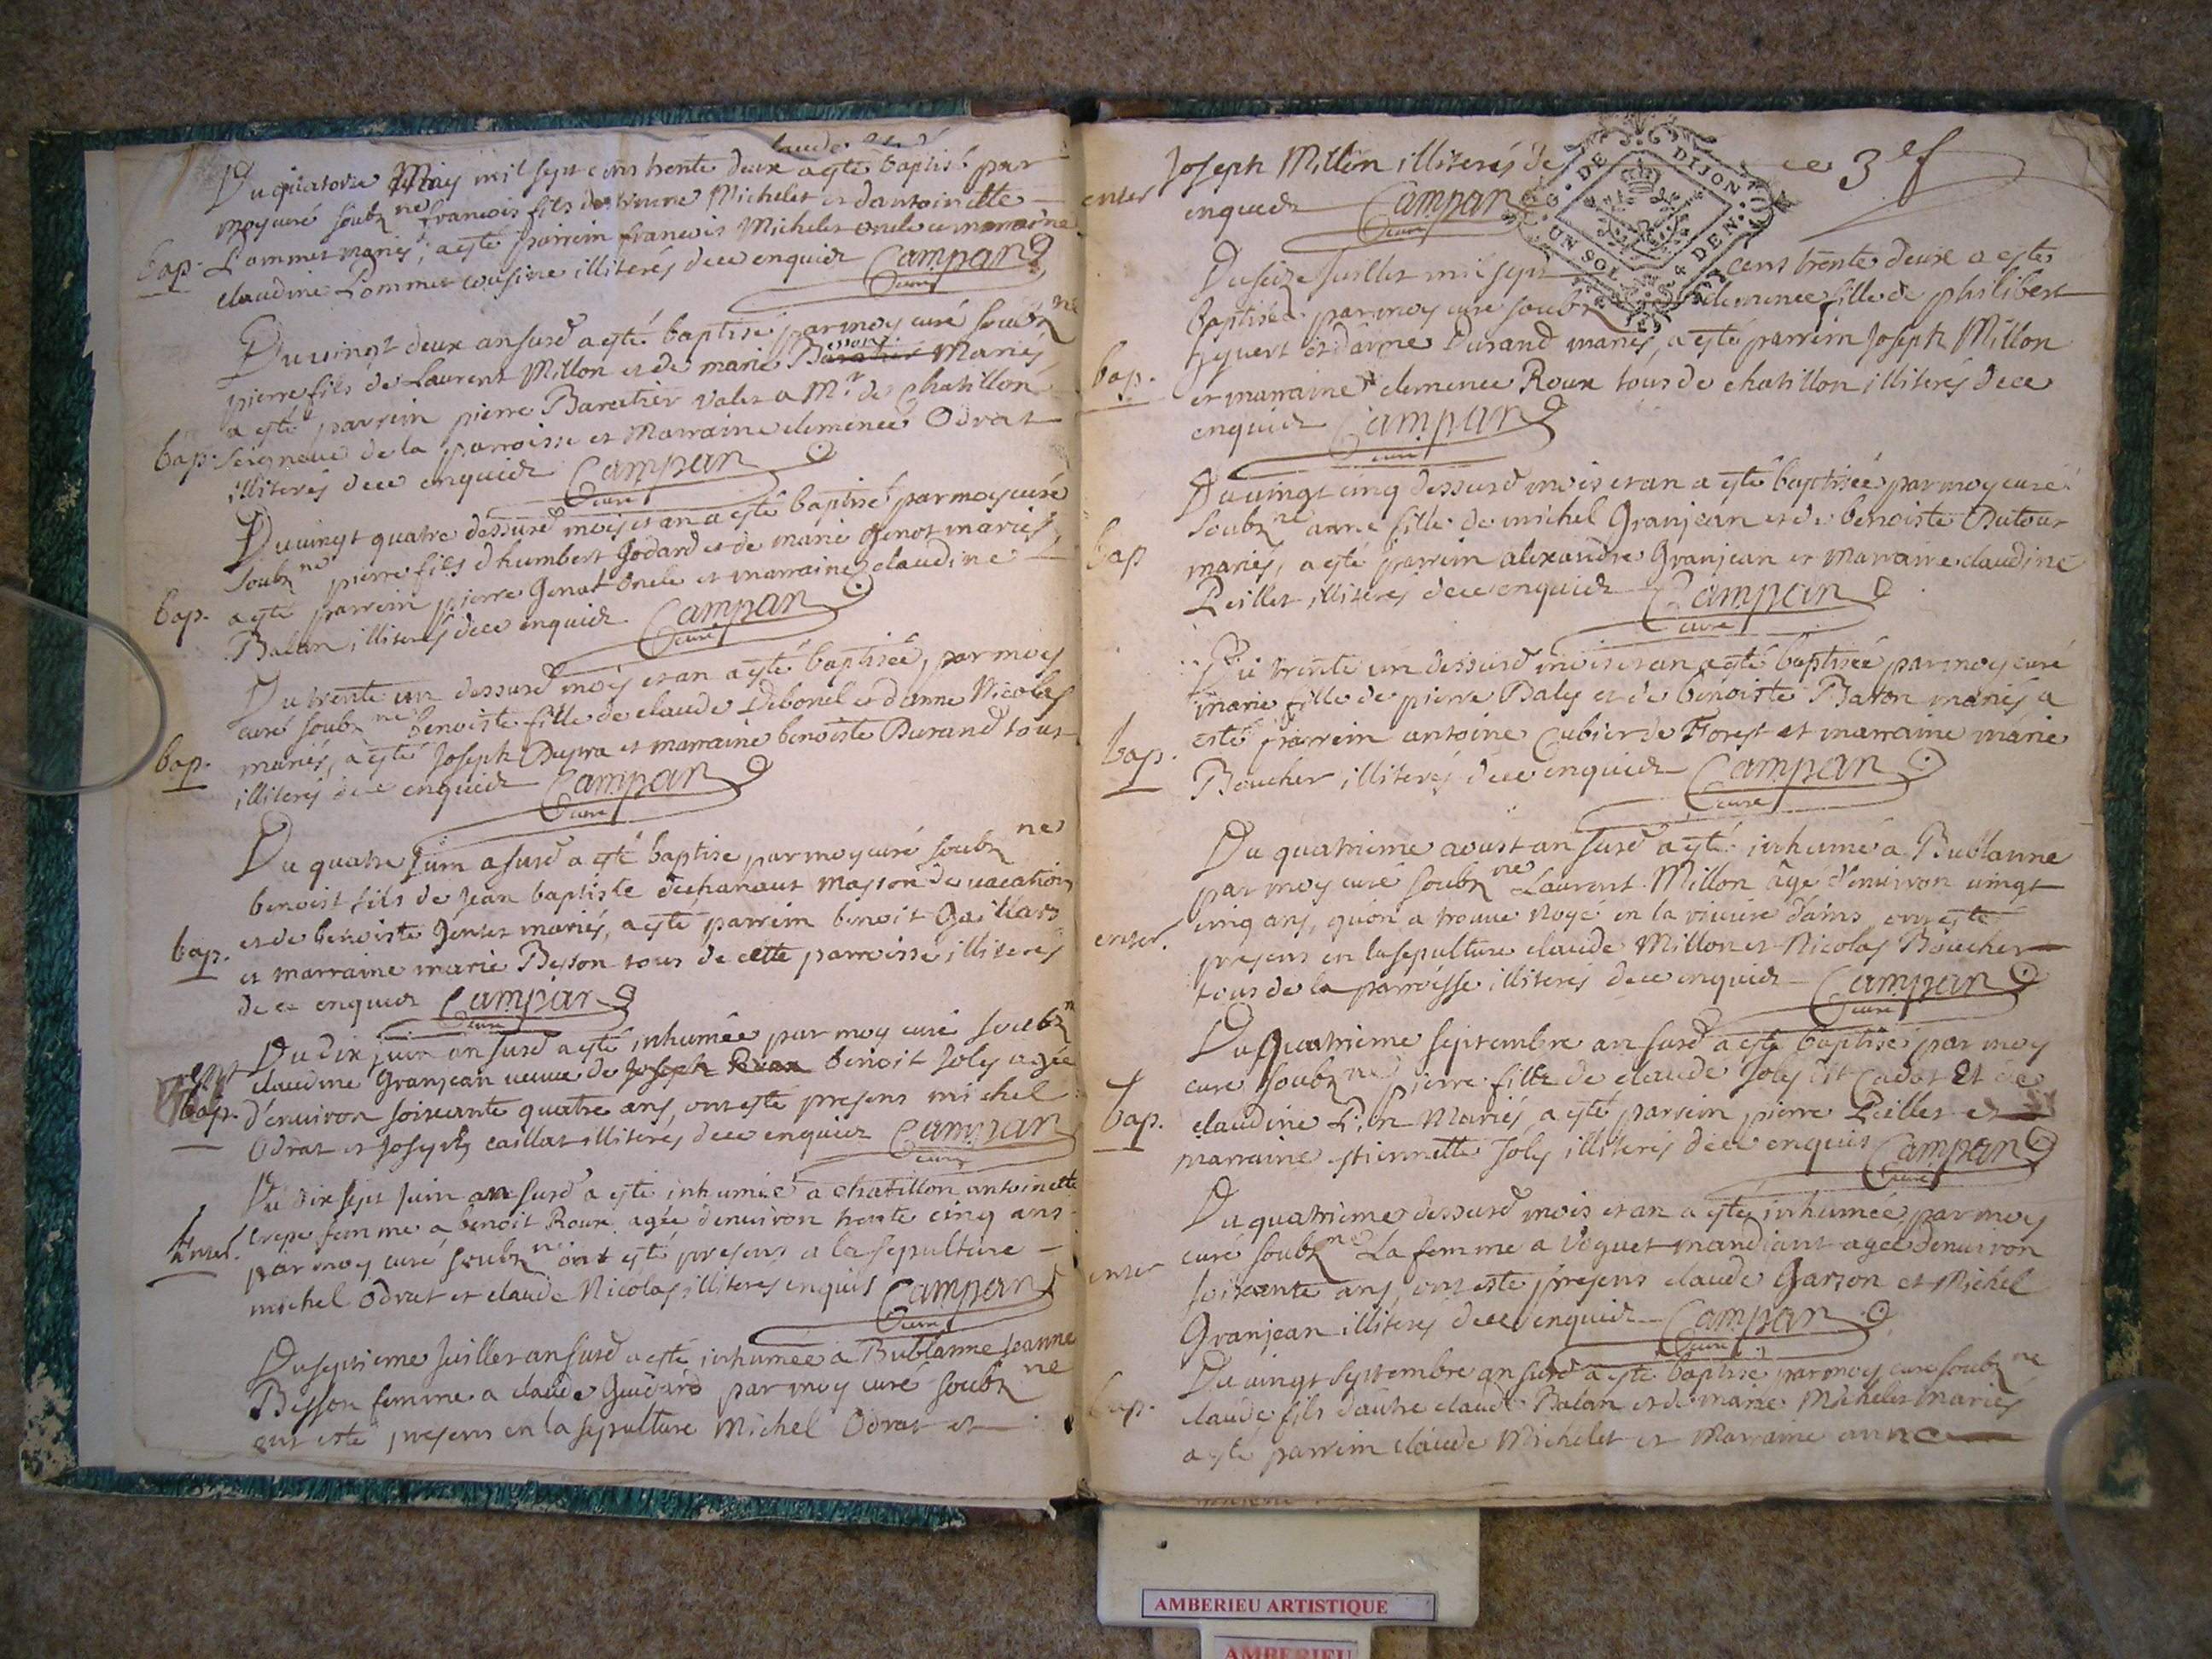 Du quatorze May mil sept cens trente deux a esté baptisé par
moy curé soubz ne francois fils de Michelet et dantoinette
bap. Pommet mariés, a esté parrein francois Michelet oncle et marraine
claudine Pommet cousine illiterés de ce enquidz Campan
curé
Du vingt deux an susd a esté baptisé par moy curé soubz ne
esson
pierre fils de Laurent Millon et de marie Baratier Mariés
a esté parrein pierre Baratier valet a Mr de Chatillon
bap. seigneur de la parroisse et Marraine clemence Odrat
illiterés de ce enquidz Campan
curé
Du vingt quatre dessusd mois et an a esté baptisé par moy curé
soubz ne pierre fils d humbert Godard et de marie Genot mariés
bap. a esté parrein pierre Genot oncle et marraine claudine
Balan illiterés de ce enquidz Campan
curé
Du trente un dessusd mois et an a esté baptisée, par moy
curé soubz ne benoiste fille de claude Debonel et danne Nicolas
bap. mariés, a esté Joseph Dupra et marraine benoiste Durand tous
illiterés de ce enquidz Campan
curé
Du quatre Juin a susd a esté baptisé par moy curé soubz ne
benoist fils de Jean baptiste dechanaut masson de vacation
bap. et de benoiste Genet mariés, a esté parrein benoit Gaillard
et marraine marie Besson tous de cette parroisse illiterés
de ce enquidz Campan
curé
Du dix juin an susd a esté inhumée par moy curé soubz n
claudine Granjean veuve de Joseph Roux benoit Joly agée
bap. d'environ soixante quatre ans, ont esté presens michel
Odrat et Joseph caillat illiterés de ce enquidz Campan
curé
Du dix sept Juin an susd a esté inhumée a chatillon antoinette
enter. crepe femme a benoit Roux agée denviron trente cinq ans
par moy curé soubz ne ont esté presens a la sepulture
michel Odrat et claude Nicolas illiterés enquis Campan
curé
Du septieme Juillet an susd a esté inhumée a Bublanne Jeanne
Besson femme a claude Guidard par moy curé soubz ne
ont esté presens en la sepulture Michel Odrat et
Joseph Millon illiterés de ce 3ef
enter enquidz Campan
curé
G. DE DIJON
UN SOL 4 DEN.
Du seize Juillet mil sept cens trente deux a esté
baptisée par moy curé soubz clemence fille de philibert
et danne Durand mariés, a esté parrein Joseph Millon
bap. et marraine clemence Roux tous de chatillon illiterés de ce
enquidz Campan
curé
Du vingt cinq dessusd mois et an a esté baptisée par moy curé
soubz ne anne fille de michel Granjean et de benoiste Dutour
bap mariés, a esté parrein alexandre Granjean et Marraine claudine
Peillet illiterés de ce enquidz Campan
curé
Du trente un dessusd mois et an a esté baptisée par moy curé
marie fille de pierre Baly et de benoiste Baton mariés a
bap. esté parrein antoine Cubier de Forest et marraine marie
Boucher illiterés de ce enquidz Campan
curé
Du quatrieme aoust an susd a esté inhumé a Bublanne
par moy curé soubz ne Laurent Millon âgé d'environ vingt
enter. cinq ans, qu'on a trouvé noyé en la riviere d'ains ont esté
presens en la sepulture claude Millon et Nicolas Boucher
tous de la parroisse illiterés de ce enquidz Campan
curé
Du quatrieme septembre an susd a esté baptisé par moy
curé soubz ne pierre fille de claude Joly dit Cadet Et de
bap. claudine Mariés, a esté parrein pierre Peillet et
marraine estiennette Joly illiterés de ce enquis Campan
curé
Du quatrieme dessusd mois et an a esté inhumée par moy
curé soubz ne La femme a Voguet mandiant agée denviron
enter soixante ans, ont esté presens claude Garson et Michel
Granjean illiterés de ce enquidz Campan
curé
Du vingt septembre an susd a esté baptisé par moy curé soubz ne
bap. claude fils d'autre claude Balan et de marie Michelet mariés
a esté parrein claude Michelet et Marraine anne
AMBERIEU ARTISTIQUE
AMBERIEU